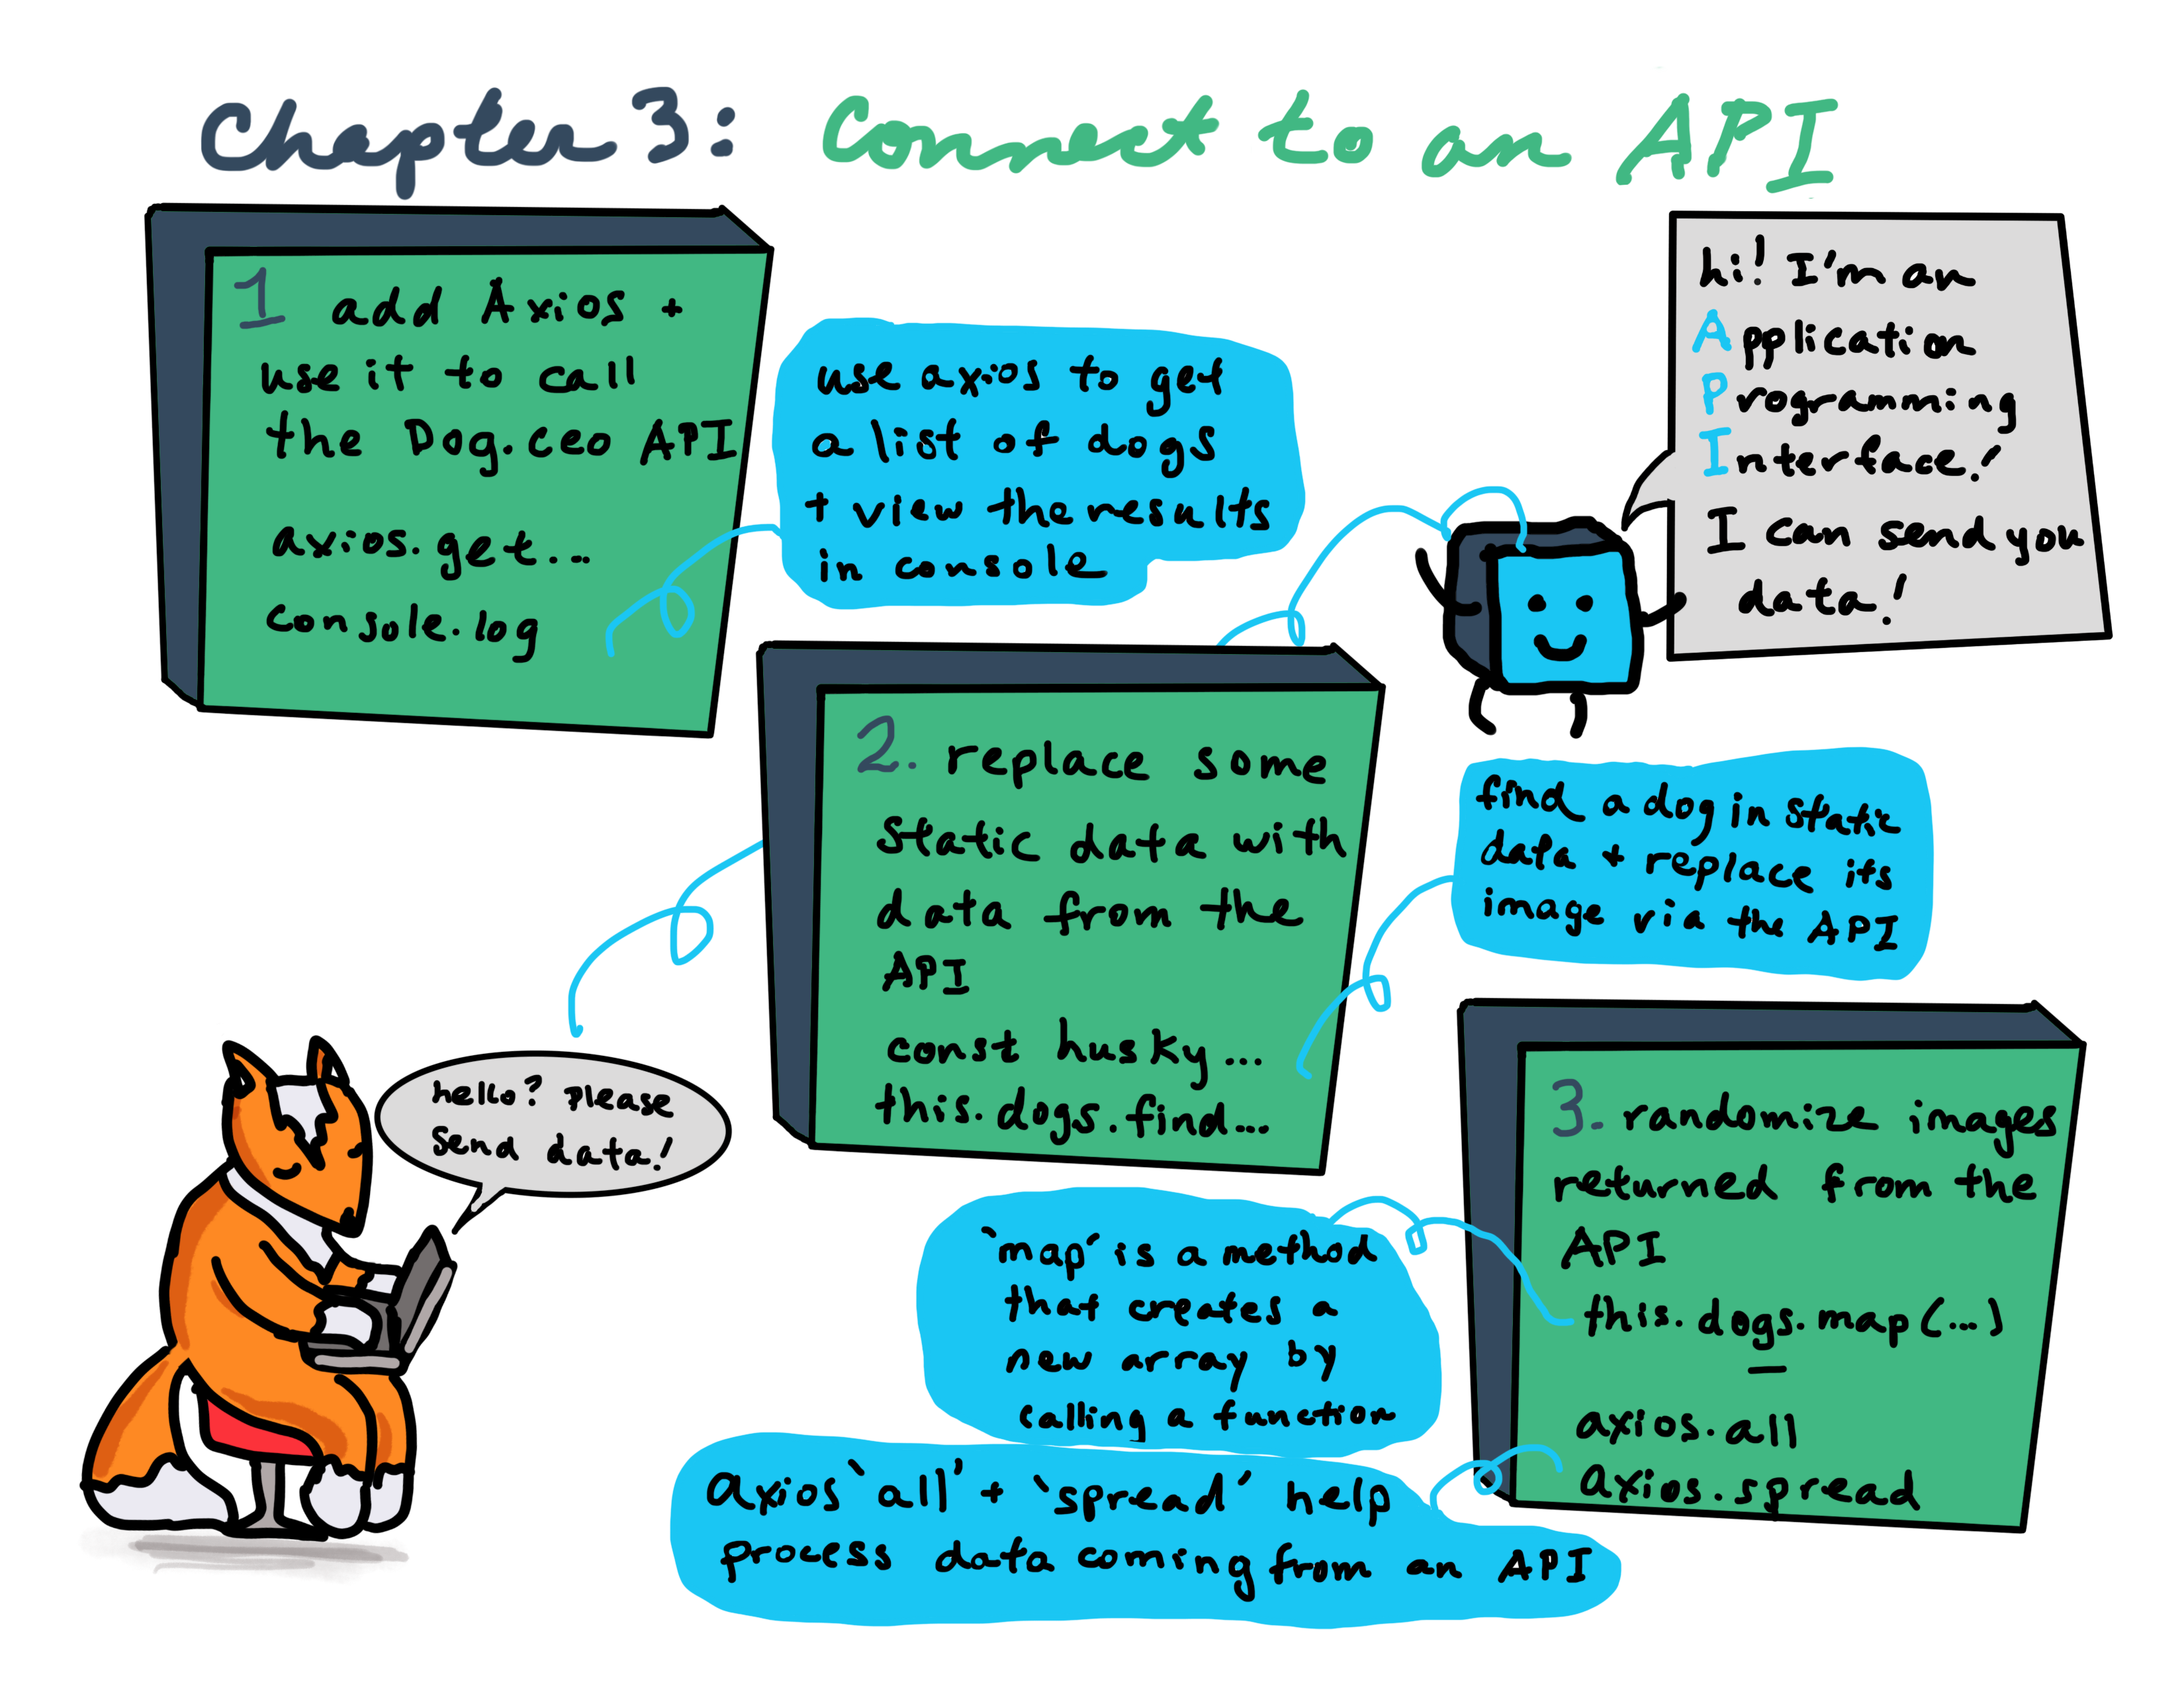 Chapter 3: Connect to an API
1 add Axios +
use it to call
the Dog.ceo API
axios.get...
console.log
use axios to get
a list of dogs
+ view the results
in console
hi! I'm an
Application
Programming
Interface!
I can send you
data!
2. replace some
static data with
data from the
API
const husky...
this.dogs.find...
find a dog in static
data + replace its
image via the API
hello? Please
send data!
3. randomize images
returned from the
API
this.dogs.map(...)
axios.all
axios.spread
`map´ is a method
that creates a
new array by
calling a function
axios `all' + `spread' help
process data coming from an API